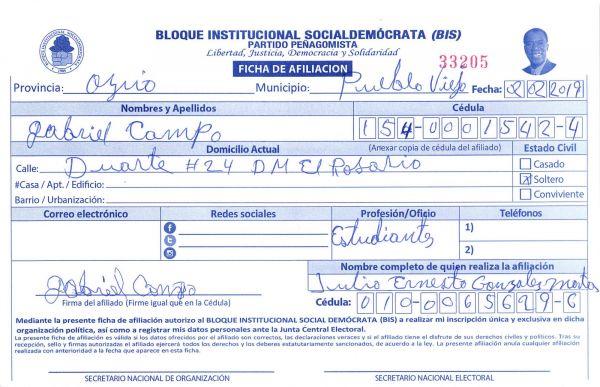 BLOQUE INSTITUCIONAL SOCIALDEMÓCRATA (BIS)
PARTIDO PEÑAGOMISTA
Libertad, Justicia, Democracia y Solidaridad
33205
FICHA DE AFILIACION
Provincia: Municipio: Pueblo Viejo Fecha: 2019
Nombres y Apellidos Cédula
Gabriel Campo 154-0001542-4
Domicilio Actual (Anexar copia de cédula del afiliado) Estado Civil
Calle: Duarte #24 DM El Rosario Casado
#Casa / Apt. / Edificio: X Soltero
Barrio / Urbanización: Conviviente
Correo electrónico Redes sociales Profesión/Oficio Teléfonos
Estudiante 1)
2)
Nombre completo de quien realiza la afiliación
Gabriel Campo Julio Ernesto Gonzales
Firma del afiliado (Firme igual que en la Cédula) Cédula: 010-0065629-6
Mediante la presente ficha de afiliación autorizo al BLOQUE INSTITUCIONAL SOCIAL DEMÓCRATA (BIS) a realizar mi inscripción única y exclusiva en dicha
organización política, así como a registrar mis datos personales ante la Junta Central Electoral.
La presente ficha de afiliación es válida si los datos ofrecidos por el afiliado son correctos, las declaraciones veraces y si el afiliado tiene el disfrute de sus derechos civiles y políticos. Tras su
recepción, sello y firmas autorizadas el afiliado ejercerá todos los derechos y los deberes estatutariamente sancionados, de acuerdo a la ley. La presente afiliación anula cualquier afiliación
realizada con anterioridad a la fecha que aparece en esta ficha.
SECRETARIO NACIONAL DE ORGANIZACIÓN SECRETARIO NACIONAL ELECTORAL